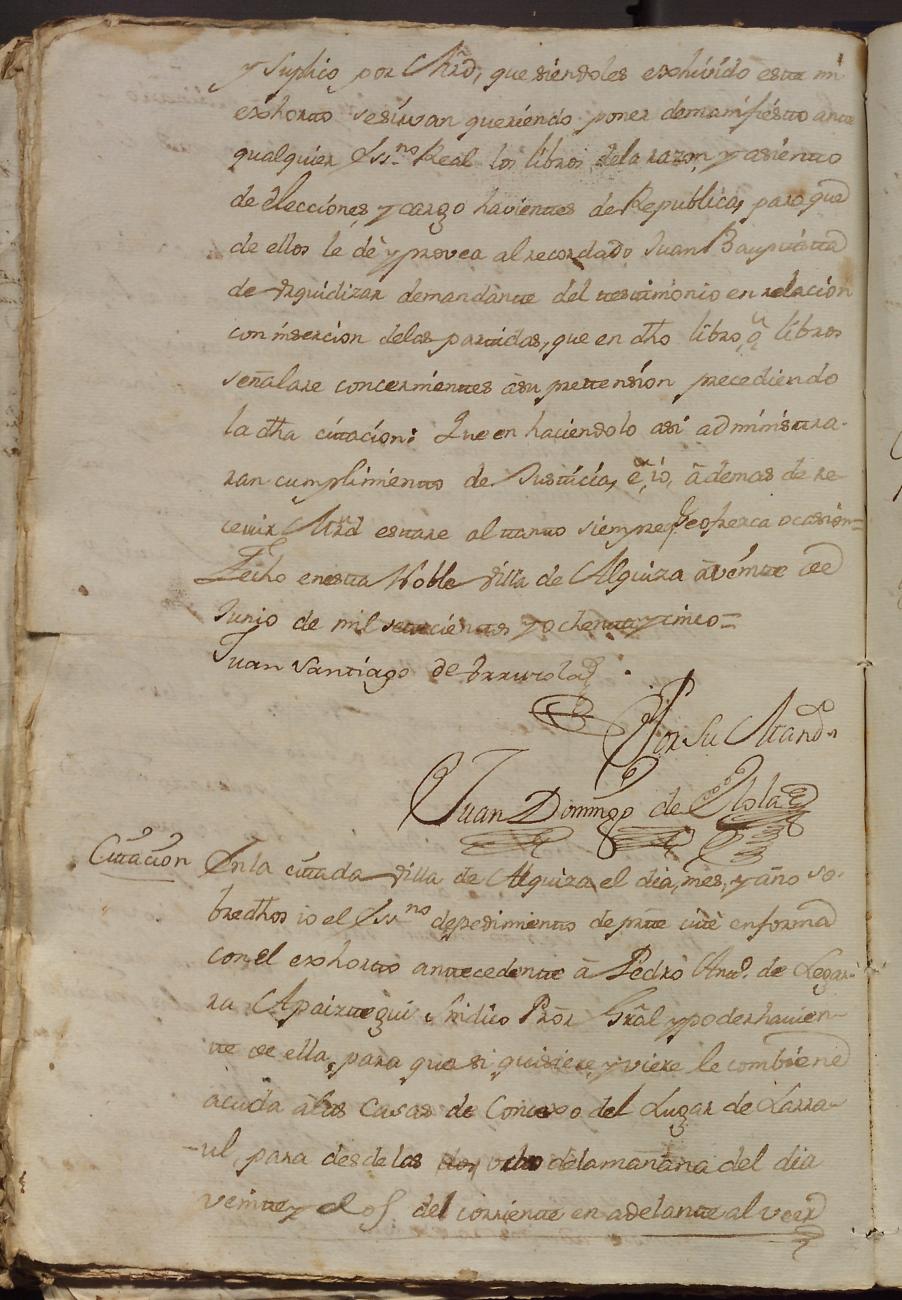 y suplico por Mrd, que siendoles exhivido este mi
exhorto se sirvan queriendo poner demanifiesto ante
qualquier Ssno Real los libros dela razon, y asiento
de elecciones, y cargo havientes de Republica, para que
de ellos le dè y provea al recordado Juan Baupttista
de Urquidizar demandante del testimonio en relacion
con insercion delas partidas, que en dho libro, ô libros
señalare concernientes âsu prettension precediendo
la dha citacion: Que en haciendolo asi administra-
ran cumplimiento de Justicia, è io, âdemas de re-
cevir Mrd estare al tanto siempre q.e se ofrezca ocasion=
Fecho en esta Noble Villa de Alquiza â veinte de
Junio de mil setecientos y ochenta y cinco=
Juan Santiago de Irrurtola
Por su Mand.o
Juan Domingo de Olola
Citacion En la citada Villa de Alquiza el dia, mes, y año so-
bredhos io el Ssno depedimiento de parte citè en forma
con el exhorto antecedente â Pedro Anto. de Legar-
ra Apaiztegui Sindico Pror Gral y poder havien-
te de ella, para que si quisiere, y viere le combiene
acuda alas Casas de Concexo del Lugar de Larra-
ul, para desde las ocho dela mañana del dia
veinte y dos del corriente en adelante al veer